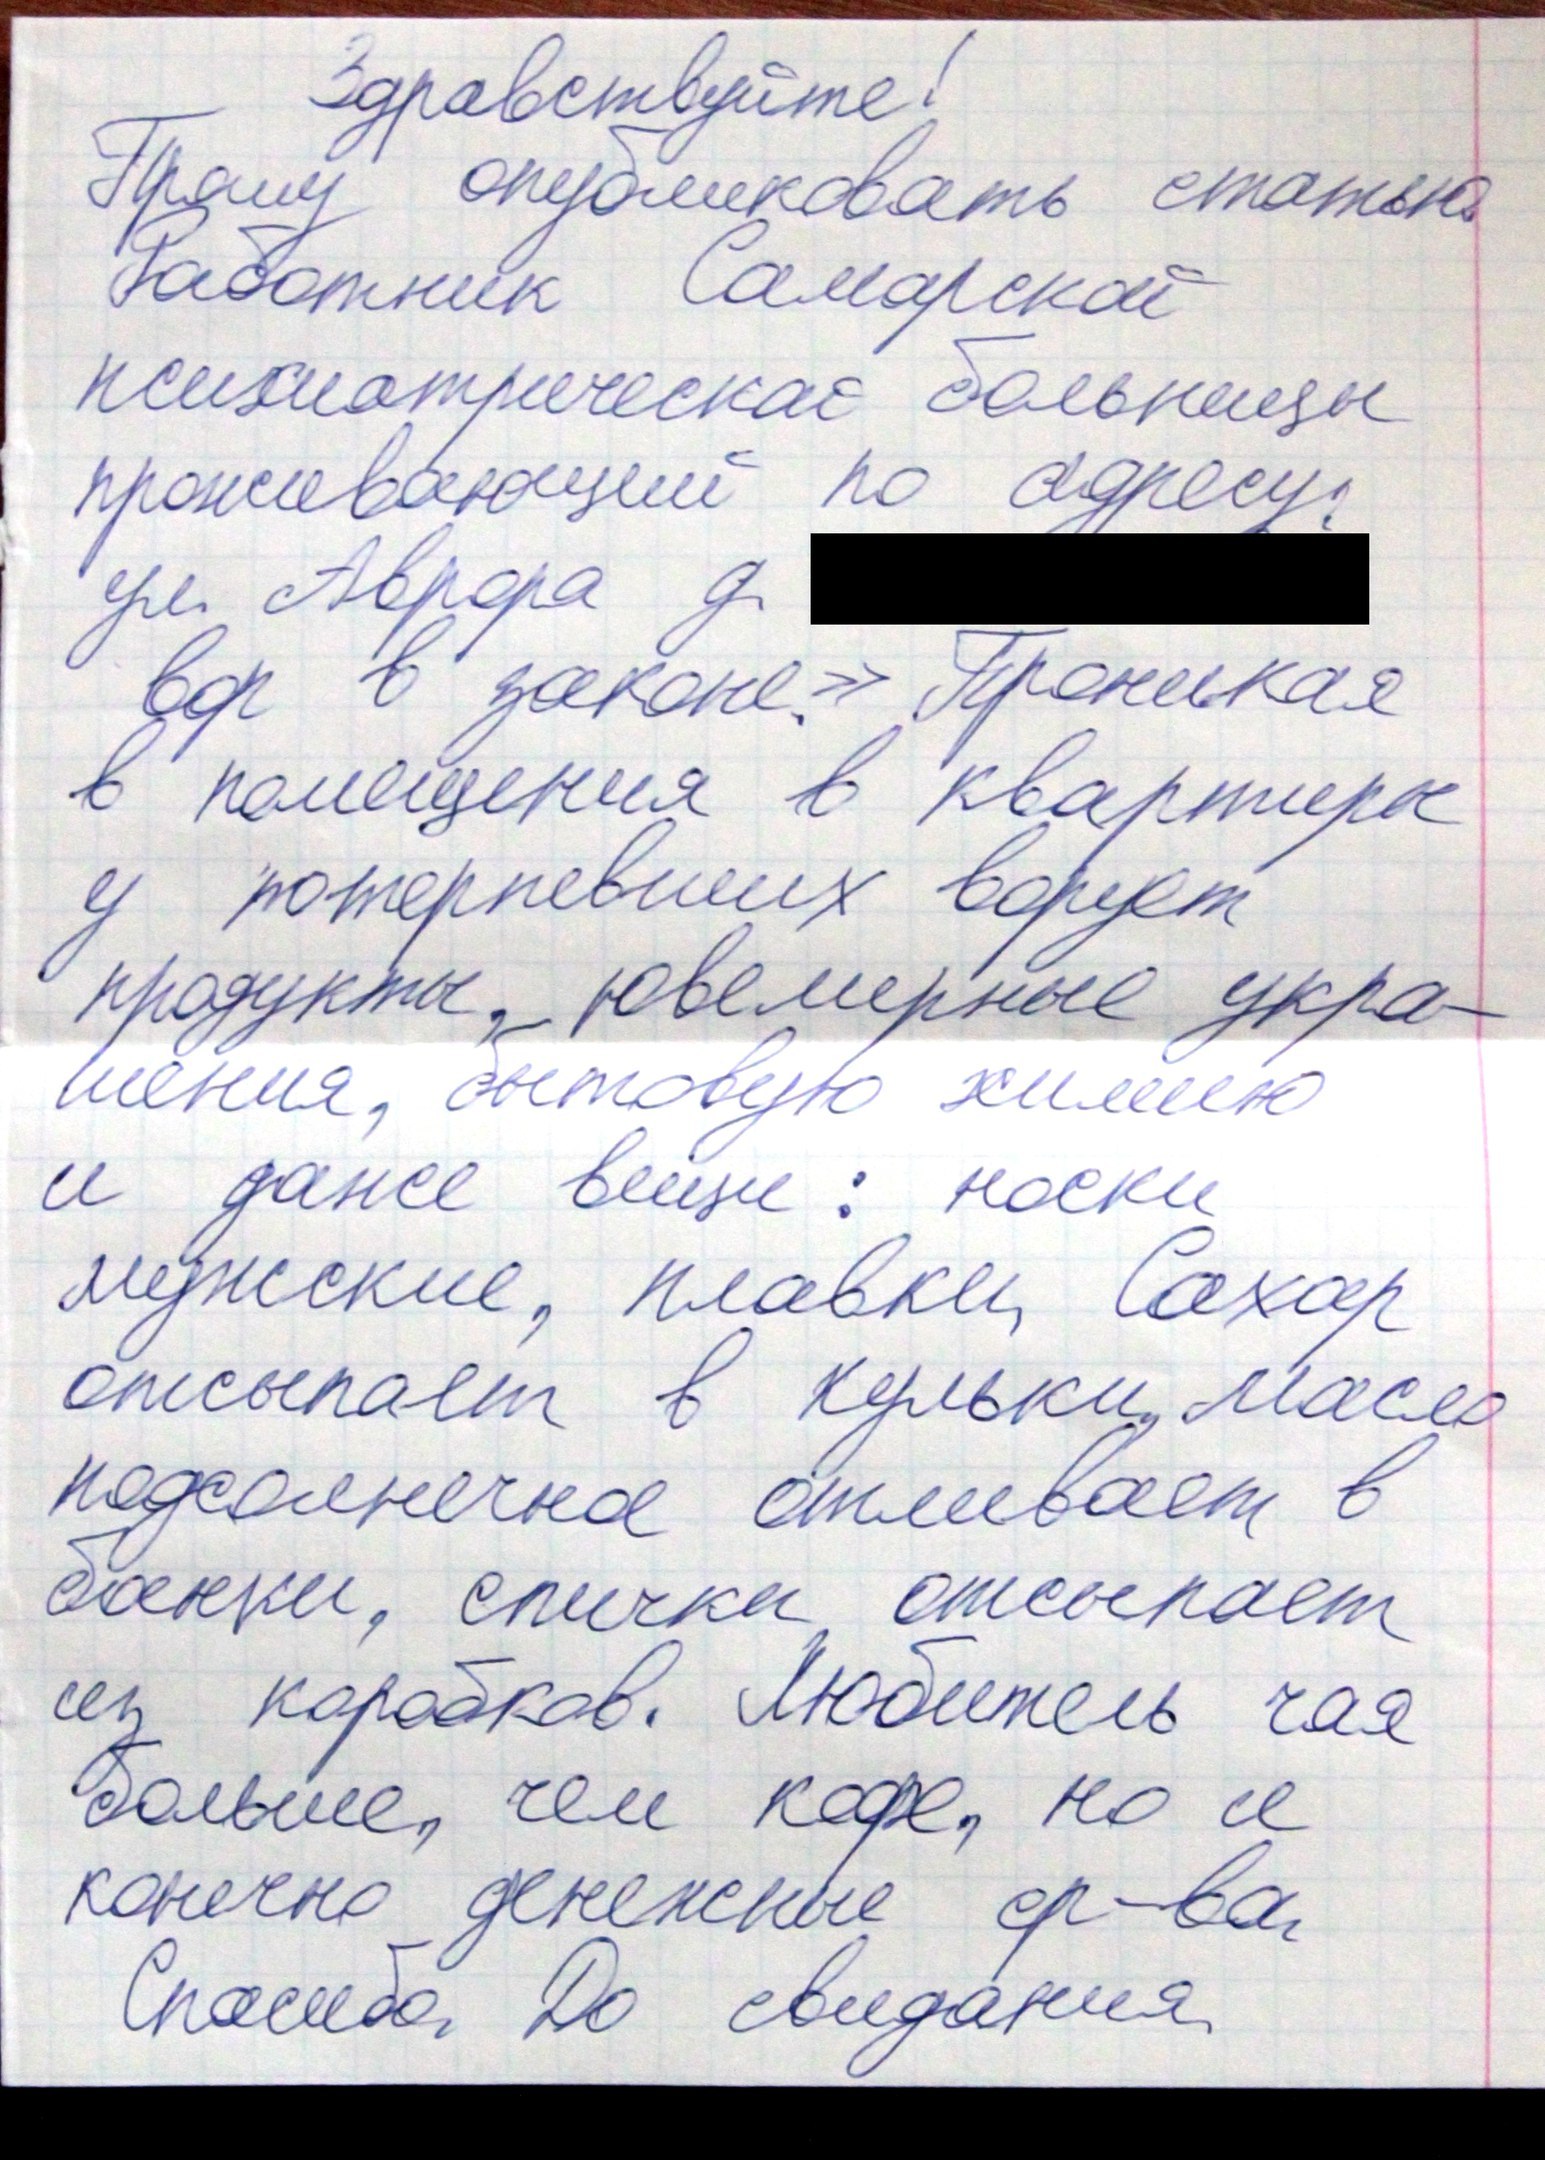 Здравствуйте!
Прошу опубликовать статью.
Работник Самарской
психиатрической больницы
проживающий по адресу:
ул. Аврора д.
вор в законе.» Проникая
в помещения в квартиры
у потерпевших ворует
продукты, ювелирные укра-
шения, бытовую химию
и даже вещи: носки
мужские, плавки, Сахар
отсыпает в кульки, масло
подсолнечное отливает в
банки, спички отсыпает
из коробков. Любитель чая
больше, чем кофе, но и
конечно денежные ср-ва,
Спасибо. До свидания.